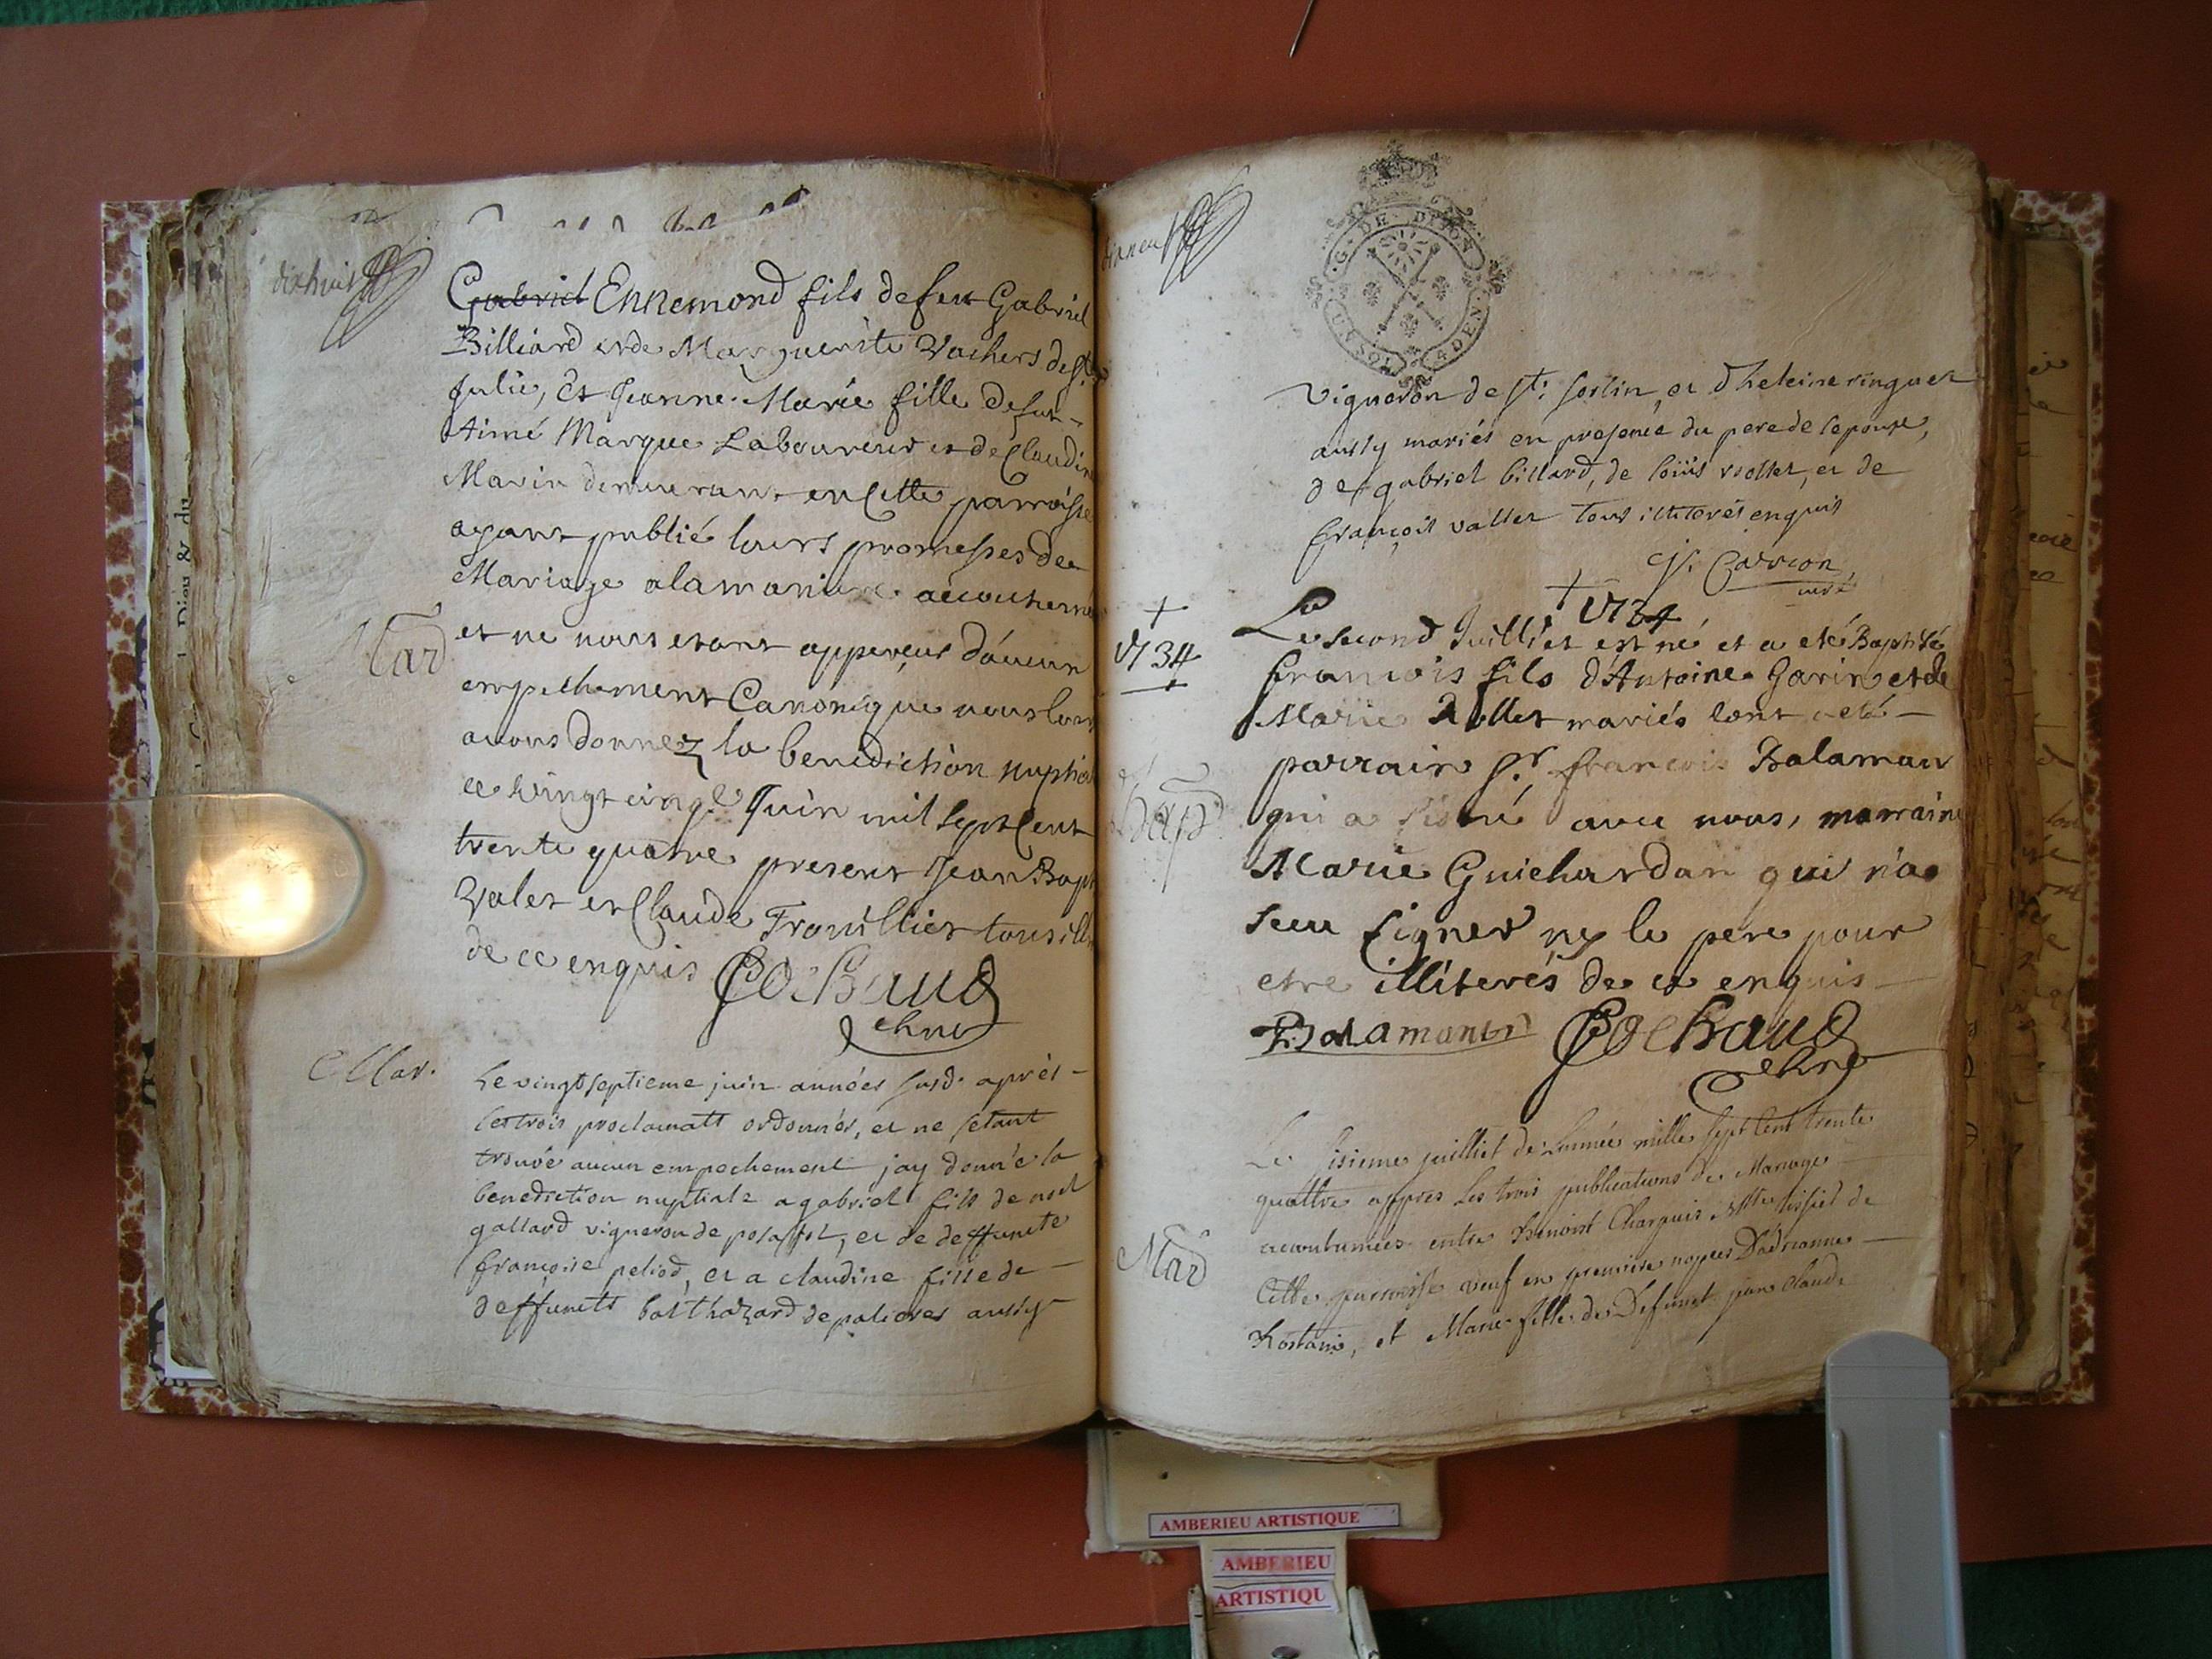 dixhuit
Gabriel Ennemond fils de feu Gabriel
Billiard et de Marguerite Vachers de St
Julie, Et Jeanne Marie fille de feu
Aimé Marque Laboureur et de Claudine
Marin demeurant en Cette parroisse
ayant publié leurs promesses de
Mariage a la maniere accoutumé
Mar
et ne nous etant apperçeus d'aucun
empechement Canonique nous leur
avons donnez la benediction nuptial
ce vingt cinq Juin mil sept Cent
trente quatre present Jean Bapt
Valet et Claude Trouillier tous ill
de ce enquis Cochaud
Mar.
Le vingt septieme juin années susd. aprés
les trois proclamatt ordonnés, et ne setant
trouvé aucun empechement jay donné la
benediction nuptiale a gabriel fils de noel
gallard vigneron de , et de deffuncte
françoise peliod, et a claudine fille de
deffuncts balthazard de palieres aussy
G. DE DIJON
4 DEN.
vigneron de st. sorlin, et d'heleine ringuet
aussy mariés en presence du pere de lepouse,
de gabriel billard, de loüis violler, et de
françois vallet tous illiterés enquis
Carron
curé
1734
1734
Le second Juillet est né et a eté Baptisé
francois fils d'Antoine Garin et de
Marie mariés lont eté
parrain Sr. francois Balaman
Bap
qui a signé avec nous, marraine
Marie Guichardan qui n'a
seu signer ny le pere pour
etre illiterés de ce enquis
Balamant Cochaud
Le sisieme juilliet de Lannée mille sept cent trente
quattre appres les trois publications de Mariage
accoutumées entre Benoist Charguis Mtre de
Mar
Cette parroisse veuf en premiere nopces D'adrianne
Rostain, et Marie fille de Defunct jean claude
AMBERIEU ARTISTIQUE
AMBERIEU
ARTISTIQU